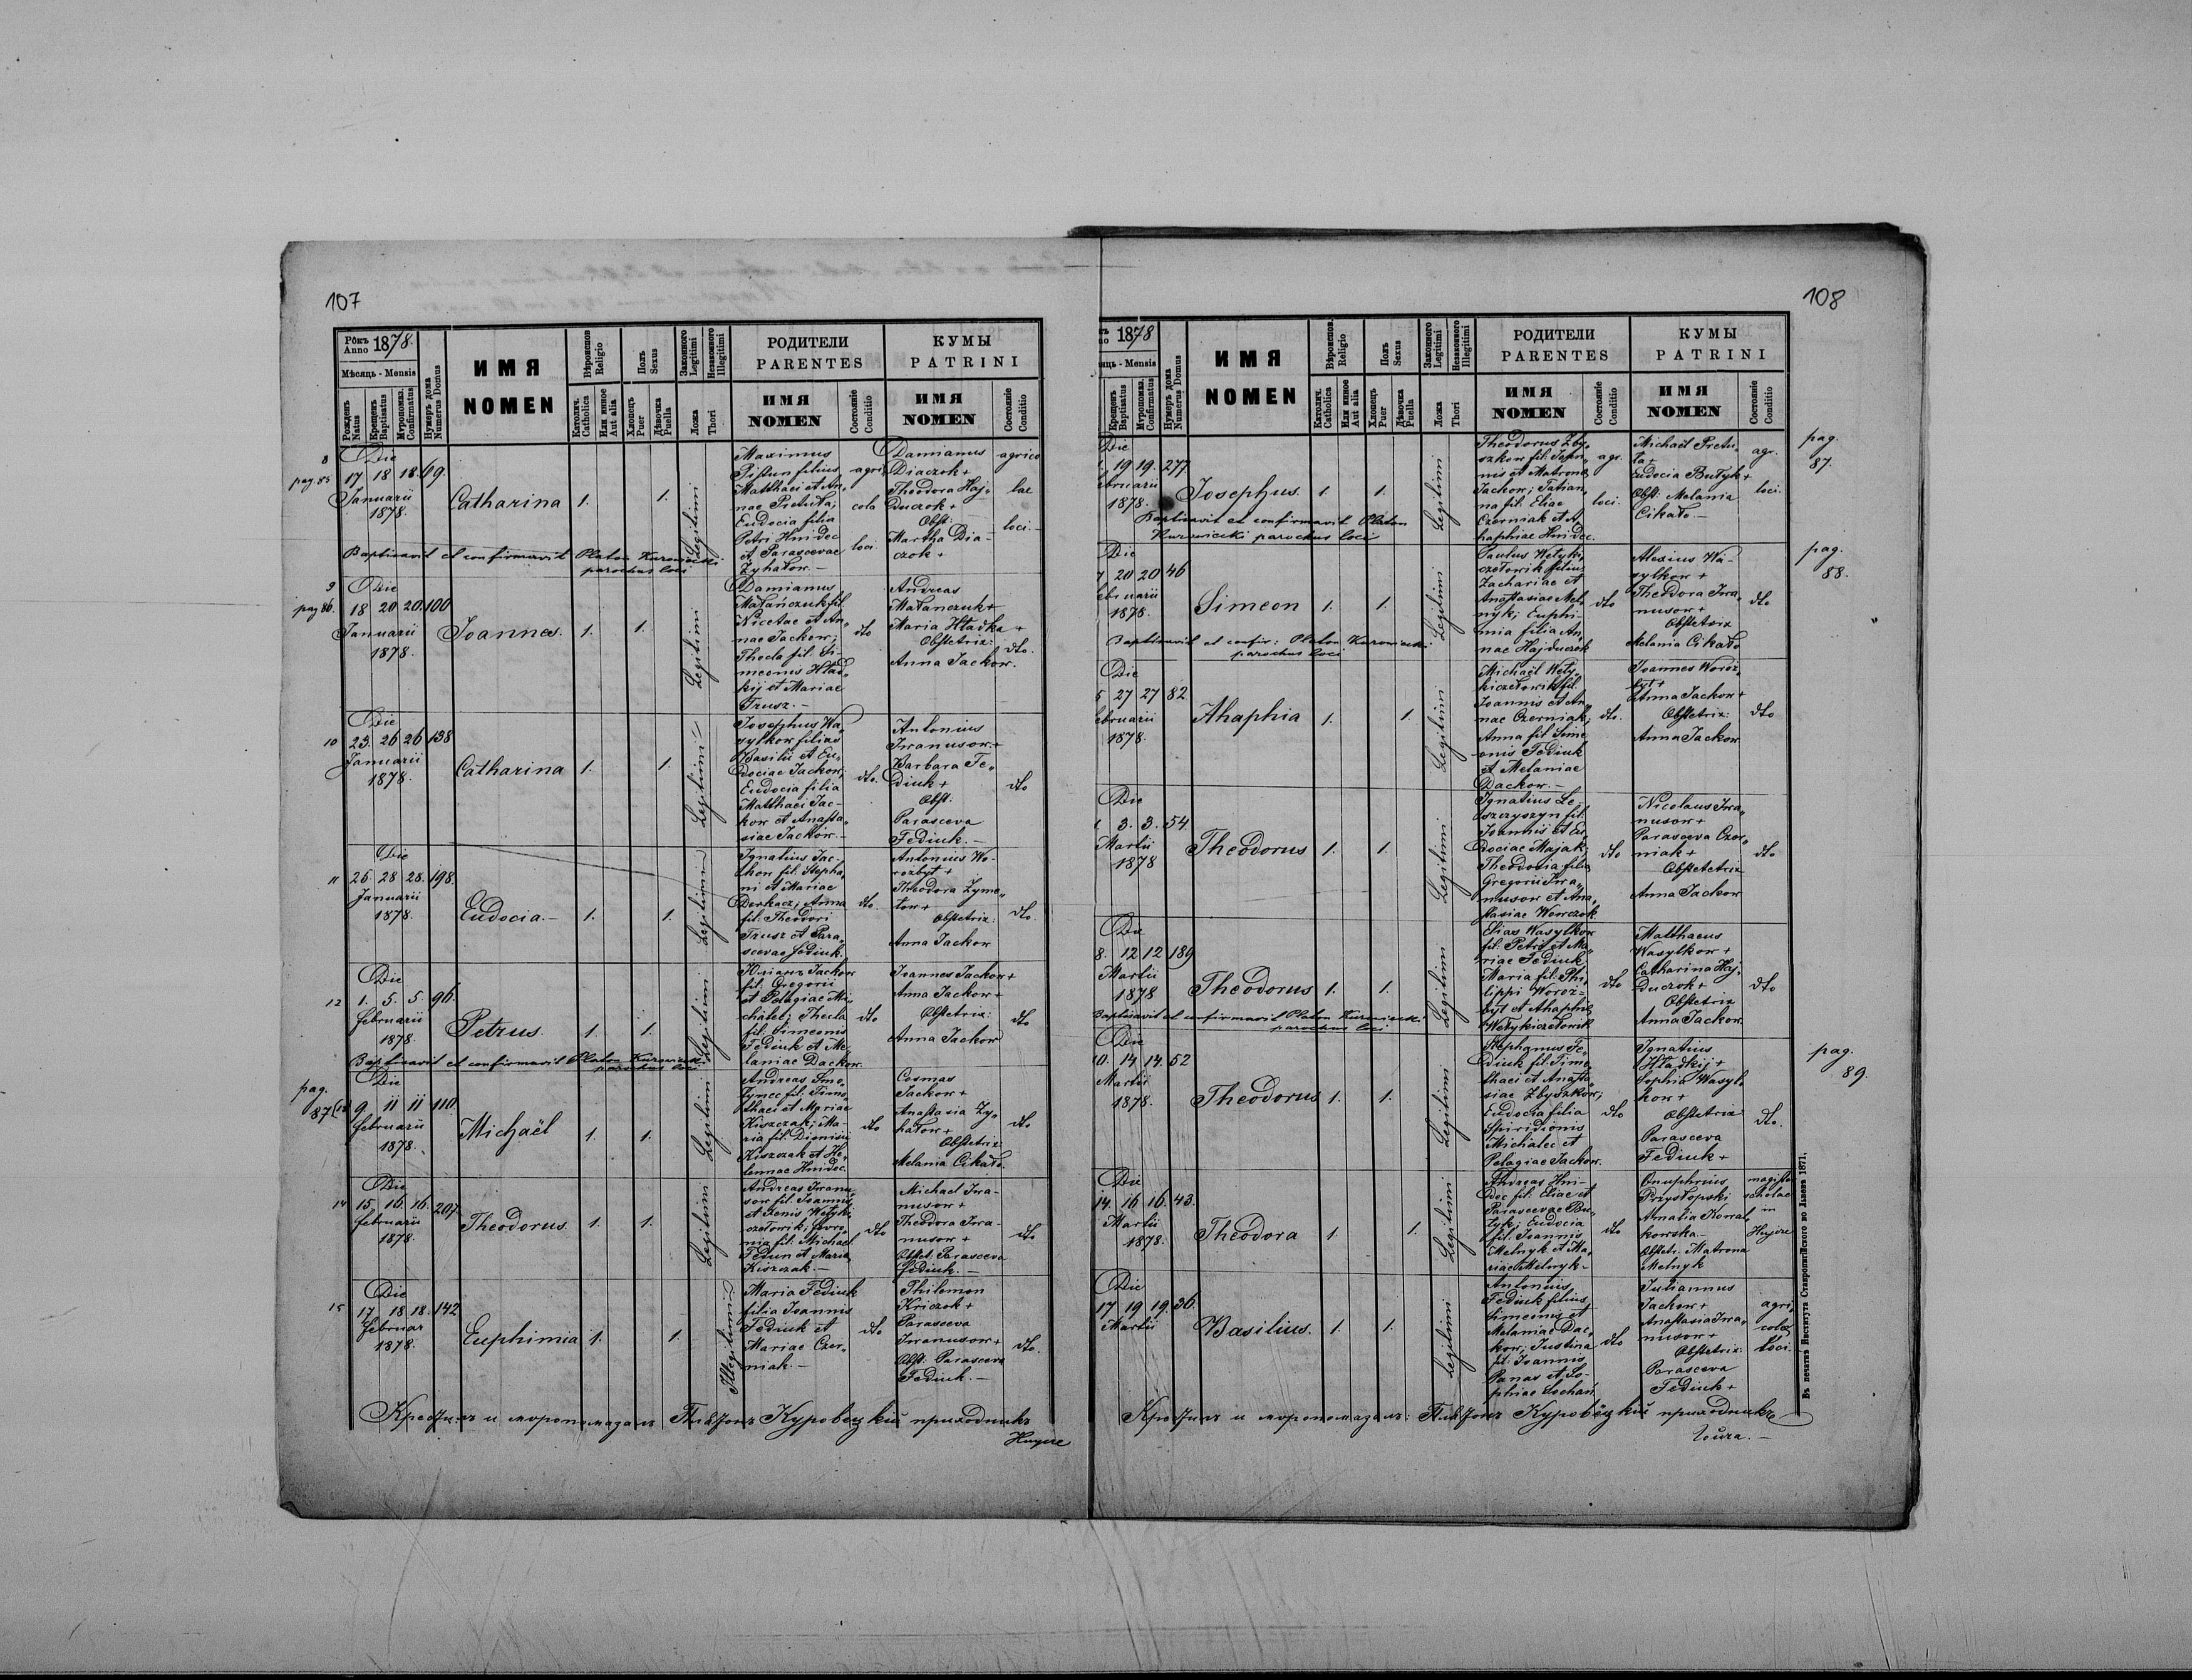 107
Рôкъ Anno 1878.
Мѣсяць - Mensis
Рожденъ Natus
Крещенъ Baptisatus
Мѵропомаз. Confirmatus
Нумеръ дома Numerus Domus
ИМЯ
NOMEN
Вѣроисповѣд. Religio
Католич. Catholica
Или инное Aut alia
Полъ Sexus
Хлопець Puer
Дѣвочка Puella
Законного Legitimi
Незаконного Illegitimi
Ложа Thori
РОДИТЕЛИ
PARENTES
ИМЯ
NOMEN
Состояніе Conditio
КУМЫ
PATRINI
ИМЯ
NOMEN
Состояніе Conditio
8
pag. 85
Die
17 18 18. 69.
Januarii
1878.
Catharina
1.
1.
Legitimi
Maximus
Pistun filius
Matthaei et An-
nae Preluta;
Eudocia filia
Petri Hnidec
et Parascevae
Zyhałow. -
agri
cola
loci
Damianus
Diaczok +
Theodora Haj-
duczok +
Obst:
Martha Dia-
czok +
agrico
lae
loci. -
Baptisavit et confirmavit Platon Kurowicki
parochus loci
9
pag 86.
Die
18 20 20. 100
Januarii
1878.
Joannes.
1.
1.
Legitimi
Damianus
Małańczuk fil.
Nicetae et An-
nae Jackow;
Thecla fil. Si-
meonis Hład-
kij et Mariae
Trusz. -
dto
Andreas
Małanczuk +
Maria Hładka +
Obstetrix:
Anna Jackow.
dto.
10
Die
23. 26 26 138
Januarii
1878.
Catharina
1.
1.
Legitimi
Josephus Wa-
sylkow filius
Basilii et Eu-
dociae Jackow;
Eudocia filia
Matthaei Jac-
kow et Anasta-
siae Jackow. -
dto.
Antonius
Iwanusow. +
Barbara Fe-
diuk +
Obst:
Parasceva
Fediuk. -
dto
11
Die
26. 28 28. 198.
Januarii
1878.
Eudocia. -
1.
1.
Legitimi
Ignatius Jac-
kow fil. Stepha-
ni et Mariae
Derkacz; Anna
fil. Theodori
Trusz et Para-
scevae Fediuk.
dto.
Antonius Wo-
rozbyt +
Theodora Zyme-
tow +
Obstetrix:
Anna Jackow
dto.
12
Die
1. 5. 5. 96.
Februarii
1878.
Petrus.
1.
1.
Legitimi
Jackow
fil. Gregorii
et Pelagiae Mi-
chalec; Thecla
fil. Simeonis
Fediuk et Me-
laniae Dackow.
dto
Joannes Jackow +
Anna Jackow +
Obstetrix:
Anna Jackow
dto
Baptisavit et confirmavit Platon Kurowicki
parochus loci
pag.
87
Die
9. 11 11 110.
Februarii
1878.
Michaël
1.
1.
Legitimi
Andreas Sme-
rynec fil. Timo-
thaei et Mariae
Kiszczak; Ma-
ria fil. Dionisii
Kiszczak et He-
lennae Hnidec.
dto
Cosmas
Jackow +
Anastasia Zy-
hałow +
Obstetrix
Melania Cikało.
dto
14
Die
15. 16. 16. 207.
Februarii
1878.
Theodorus.
1.
1.
Legitimi
Andreas Iwanu-
sow fil. Joannis
et Xeniis Wełyki-
czołowik; Fevro-
nia fil. Michael
Fedun et Maria
Kiszczak. -
dto
Michael Iwa-
nusow +
Theodora Iwa-
nusow +
Obstet. Parasceva
Fediuk. -
dto
15
Die
17. 18 18. 142
Februar
1878.
Euphimia
1.
1.
Illegitimi
Maria Fediuk
filia Joannis
Fediuk et
Mariae Czer-
niak. -
dto
Philemon
Kriczok +
Parasceva
Iwanusow +
Obst: Parasceva
Fediuk. -
dto.
Крестилъ и мѵропомазалъ Платонъ Куровѣцкій приходникъ
Hujcze
108
1878
Мѣсяць - Mensis
Крещенъ Baptisatus
Мѵропомаз. Confirmatus
Нумеръ дома Numerus Domus
ИМЯ
NOMEN
Вѣроиспов. Religio
Католич. Catholica
Или инное Aut alia
Полъ Sexus
Хлопець Puer
Дѣвочка Puella
Законного Legitimi
Незаконного Illegitimi
Ложа Thori
РОДИТЕЛИ
PARENTES
ИМЯ
NOMEN
Состояніе Conditio
КУМЫ
PATRINI
ИМЯ
NOMEN
Состояніе Conditio
pag.
87.
Die
19 19. 277.
ebruarii
1878.
Josephus
1.
1.
Legitimi
Theodorus Zby-
szkow fil. Joan-
nis et Matrona
Jackow; Tatian-
na fil. Eliae
Czerniak et A-
haphiae Hnidec.
agr.
loci.
Michaël Pretu-
ła +
Eudocia Butyk +
Obst: Melania
Cikało. -
agr.
loci.
Baptisavit et confirmavit Platon
Kurowicki parochus loci
pag.
88.
Die
20 20 46
ebruarii
1878.
Simeon
1.
1.
Legitimi
Paulus Wełyki-
czołowik filius
Zachariae et
Anastasiae Mel-
nyk; Euphi-
mia filia An-
nae Hajduczok
dto
Alexius Wa-
sylkow +
Theodora Iwa-
nusow +
Obstetrix
Melania Cikało
dto
Baptisavit et confir: Platon Kurowicki
parochus loci
Die
27 27 82
ebruarii
1878.
Ahaphia
1.
1.
Legitimi
Michaël Wely-
kiczołowik fil.
Joannis et An-
nae Czerniak;
Anna fil Sime-
onis Fediuk
et Melaniae
Dackow. -
dto.
Joannes Woroz-
byt +
Anna Jackow +
Obstetrix:
Anna Jackow
dto
Die
3. 3. 54.
Martii
1878
Theodorus
1.
1.
Legitimi
Ignatius Le-
szczyszyn fil.
Joannis et Eu-
dociae Majak;
Theodosia filia
Gregorii Iwa-
nusow et Ana-
stasiae Worczok.
dto
Nicolaus Iwa-
nusow +
Parasceva Czer-
niak +
Obstetetrix
Anna Jackow
dto
Die
8. 12 12 189
Martii
1878
Theodorus
1.
1.
Legitimi
Elias Wasylkow
fil. Petri et Ma-
riae Fediuk
Maria fil. Phi-
lippi Woroz-
byt et Ahaphia
Wełykiczołowik
dto
Matthaeus
Wasylkow +
Catharina Haj-
duczok +
Obstetrix
Anna Jackow.
dto
Baptisavit et confirmavit Platon Kurowicki
parochus loci
pag.
89.
Die
10. 14 14. 52
Martii
1878.
Theodorus
1.
1.
Legitimi
Stephanus Fe-
diuk fil. Timo-
thaei et Anasta-
siae Zbyszkow;
Eudocia filia
Spiridionis
Michalec et
Pelagiae Jackow.
dto
Ignatius
Hładkij +
Sophia Wasyl-
kow +
Obstetrix
Parasceva
Fediuk +
dto.
Die
14. 16 16. 43.
Martii
1878.
Theodora
1.
1.
Legitimi
Andreas Hni-
dec fil. Eliae et
Parascevae Bu-
tyk; Eudocia
fil. Joannis
Melnyk et Ma-
riae Melnyk -
dto
Onuphrius
Przysłopski
Amalia Kowal-
kowska -
Obstetr. Matrona
Melnyk
magister
scholae
in
Hujcze
Die
17 19 19. 36.
Martii
Basilius.
1.
1.
Legitimi
Antonius
Fediuk filius
Simeonis et
Melaniae Dac-
kow; Justina
fil. Joannis
Panas et So-
phiae Lochań.
dto
Julianus
Jackow +
Anastasia Iwa-
nusow +
Obstetrix:
Parasceva
Fediuk +
agri-
colae
loci.
Крестилъ и мѵропомазалъ: Платонъ Куровѣцкій приходникъ
Въ печатнѣ Института Ставропигійского во Львовѣ 1871.